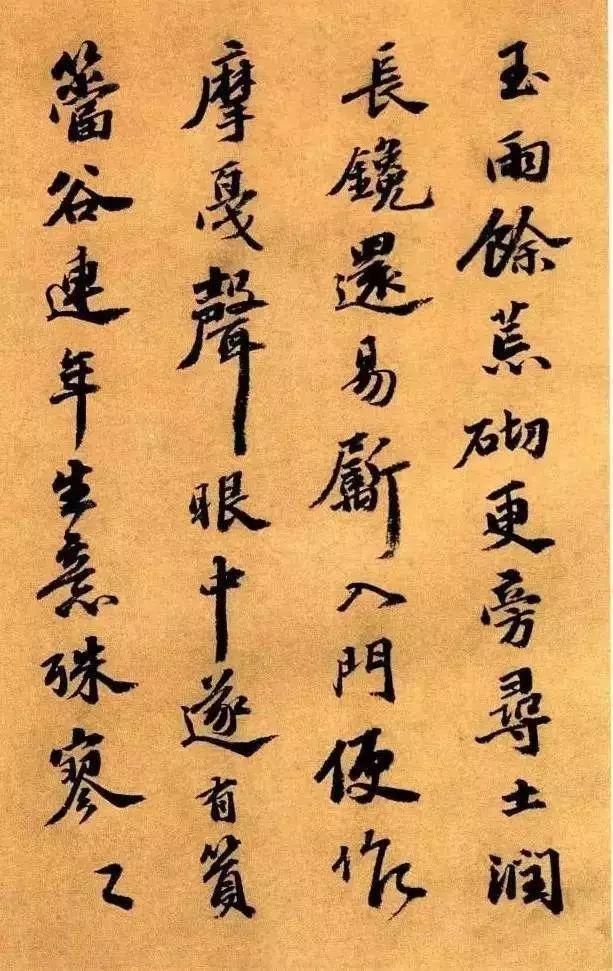 玉雨餘荒砌更旁尋土潤
長鑱還易斸入門便作
摩戛聲眼中遂有篔
簹谷連年生意殊寥〻